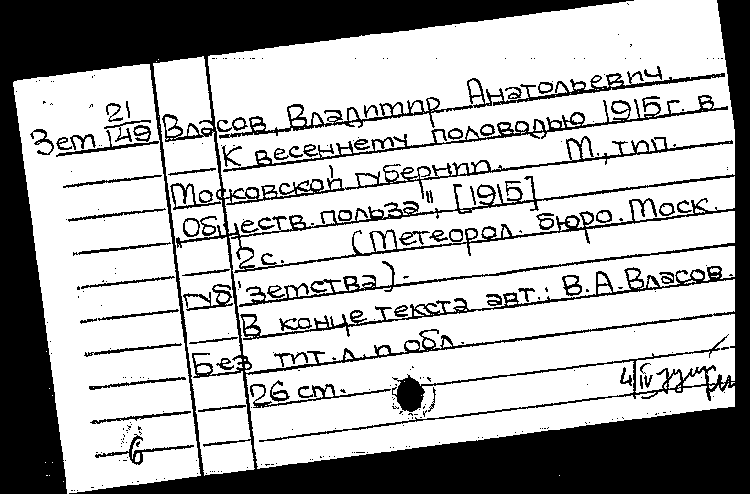 21
Зет 149 Власов, Владимир Анатольевич.
К весеннему половодью 1915 г. в
Московской губернии. М., тип.
„Обществ. польза", [1915]
2 с. (Метеорол. бюро. Моск.
губ. земства).
В конце текста авт.: В.А. Власов.
Без тит. л. и обл.
26 cm.
4/IV
6